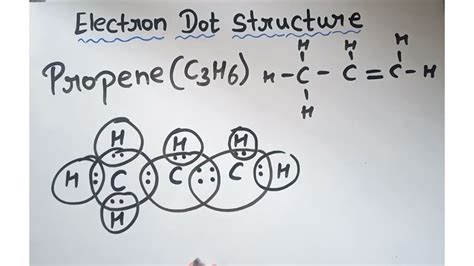 Electron Dot Structure
H H H
Propene (C3H6) H-C-C=C-H
H
H H H
H C C C H
H